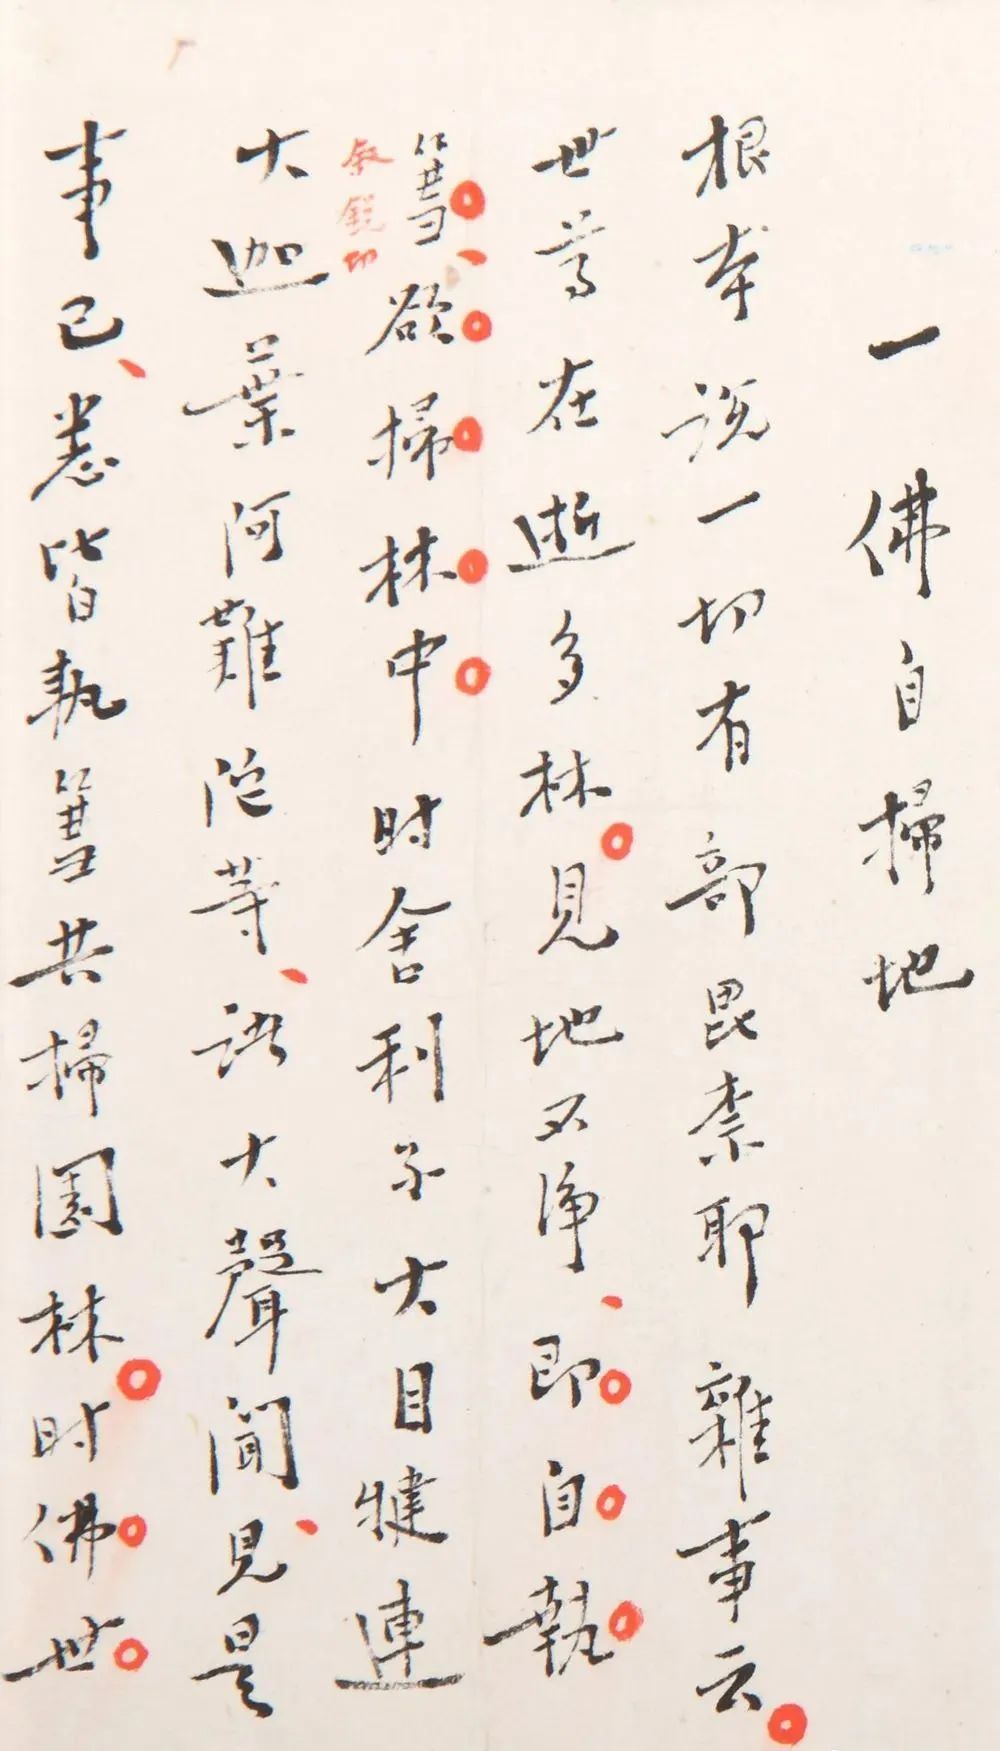 一 佛自掃地
根本説一切有部毘柰耶雜事云。
世尊在逝多林。見地不淨、即自執
篲、欲掃林中时舍利子大目犍連
叙銳切
大迦葉阿難陀等、諸大聲聞、見是
事已、悉皆執篲共掃園林。时佛世